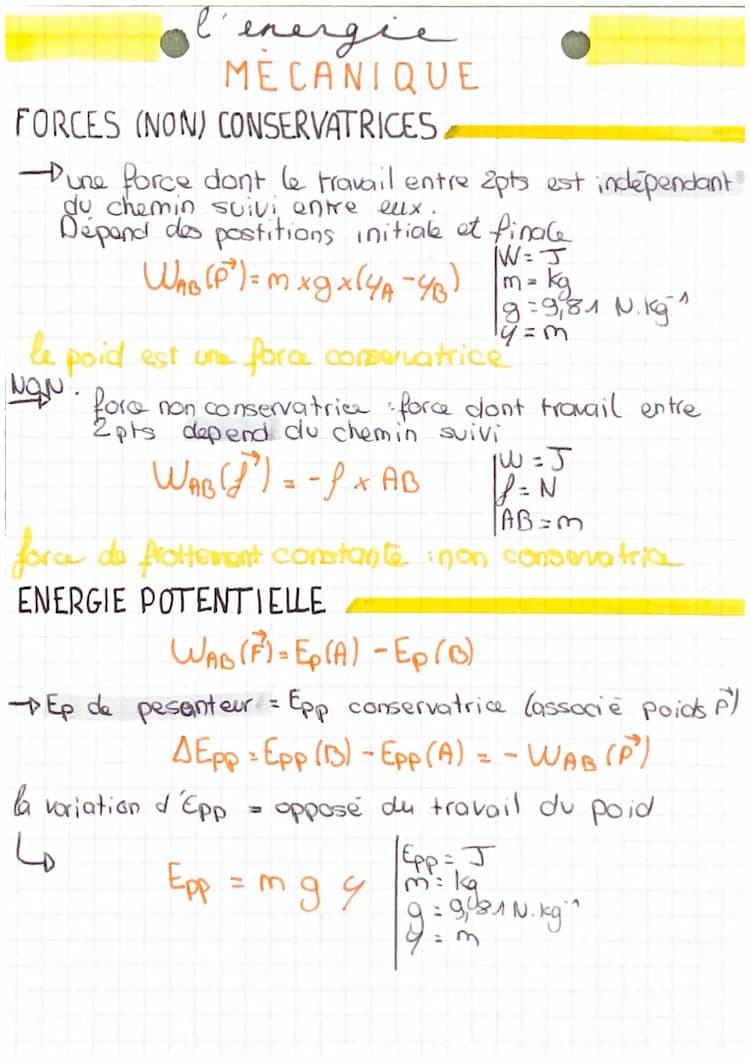 l'énergie
MÉCANIQUE
FORCES (NON) CONSERVATRICES
→ une force dont le travail entre 2pts est indépendant
du chemin suivi entre eux.
Dépend des postitions initiale et finale
W_AB(P⃗) = m x g x (y_A - y_B)
W = J
m = kg
g = 9,81 N.kg⁻¹
y = m
le poid est une force conservatrice
NON.
force non conservatrice : force dont travail entre
2pts depend du chemin suivi
W_AB(f⃗) = - f x AB
W = J
f = N
AB = m
force de frottement constante : non conservatrice
ENERGIE POTENTIELLE
W_AB(F⃗) = Ep(A) - Ep(B)
→ Ep de pesanteur = Epp conservatrice (associé poids P⃗)
ΔEpp = Epp(B) - Epp(A) = - W_AB(P⃗)
la variation d'Epp = opposé du travail du poid
↳
Epp = m g y
Epp = J
m = kg
g = 9,81 N.kg⁻¹
y = m